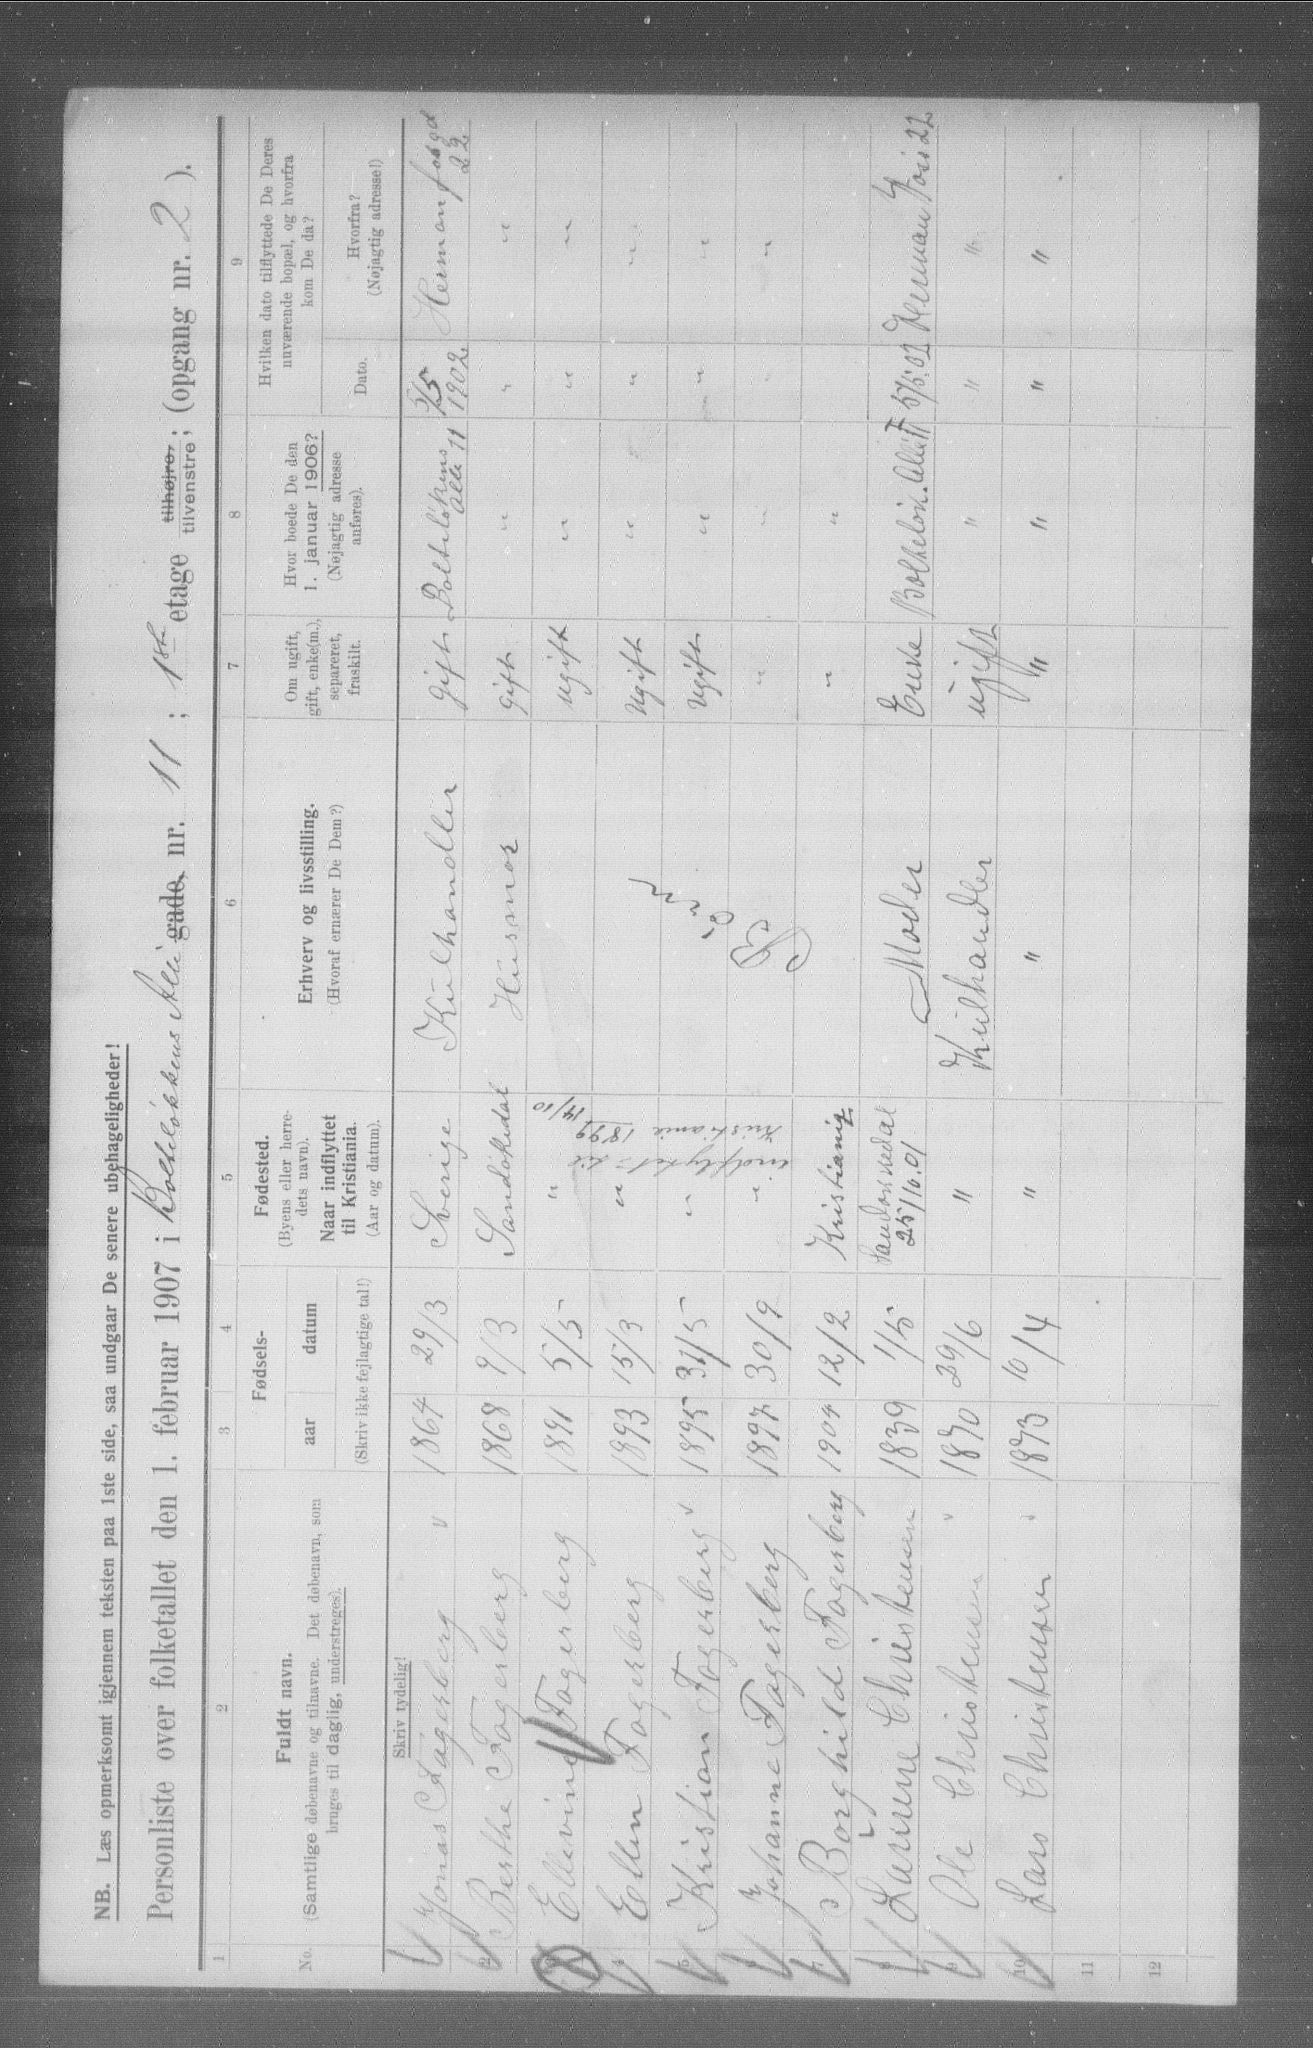 NB. Læs opmerksomt igjennem teksten paa 1ste side, saa undgaar De senere ubehageligheder!
Personliste over folketallet den 1. februar 1907 i Bolteløkkens Alle gade, nr. 11 ; 1ste etage tilhøjre, tilvenstre ; (opgang nr. 2 ).
1 2 3 4 5 6 7 8 9
No.
Fuldt navn.
(Samtlige døbenavne og tilnavne. Det døbenavn, som
bruges til daglig, understreges).
Fødsels-
aar datum
(Skriv ikke fejlagtige tal!)
Fødested.
(Byens eller herre-
dets navn).
Naar indflyttet
til Kristiania.
(Aar og datum).
Erhverv og livsstilling.
(Hvoraf ernærer De Dem?)
Om ugift,
gift, enke(m.),
separeret,
fraskilt.
Hvor boede De den
1. januar 1906?
(Nøjagtig adresse
anføres).
Hvilken dato tilflyttede De Deres
nuværende bopæl, og hvorfra
kom De da?
Dato.
Hvorfra?
(Nøjagtig adresse!)
Skriv tydelig!
Jonas Fagerberg 1864 29/3 Sverige Kulhandler gift Bolteløkens alle 11 5/5 1902 Herman 22
2 Berthe Fagerberg 1868 9/3 Sandøkedal Husmor gift " " "
Ellevine Fagerberg 1891 5/5 " ugift " " "
4 Ellen Fagerberg 1893 15/3 " ugift " " "
5 Kristian Fagerberg 1895 31/5 " ugift " " "
Johanne Fagerberg 1897 30/9 " " " " "
indflyttet til Kristiania 1899 14/10
Børn
7 Borghild Fagerberg 1904 12/2 Kristiania " "
8 Laurene Christensen 1839 1/5 25/10.01 Moder Enke Bolteløk. Alle 11 5/5.02 Herman 22
9 Ole Christensen 1870 29/6 " Kulhandler ugift " " "
10 Lars Christensen 1873 10/4 " " " " " "
11
12